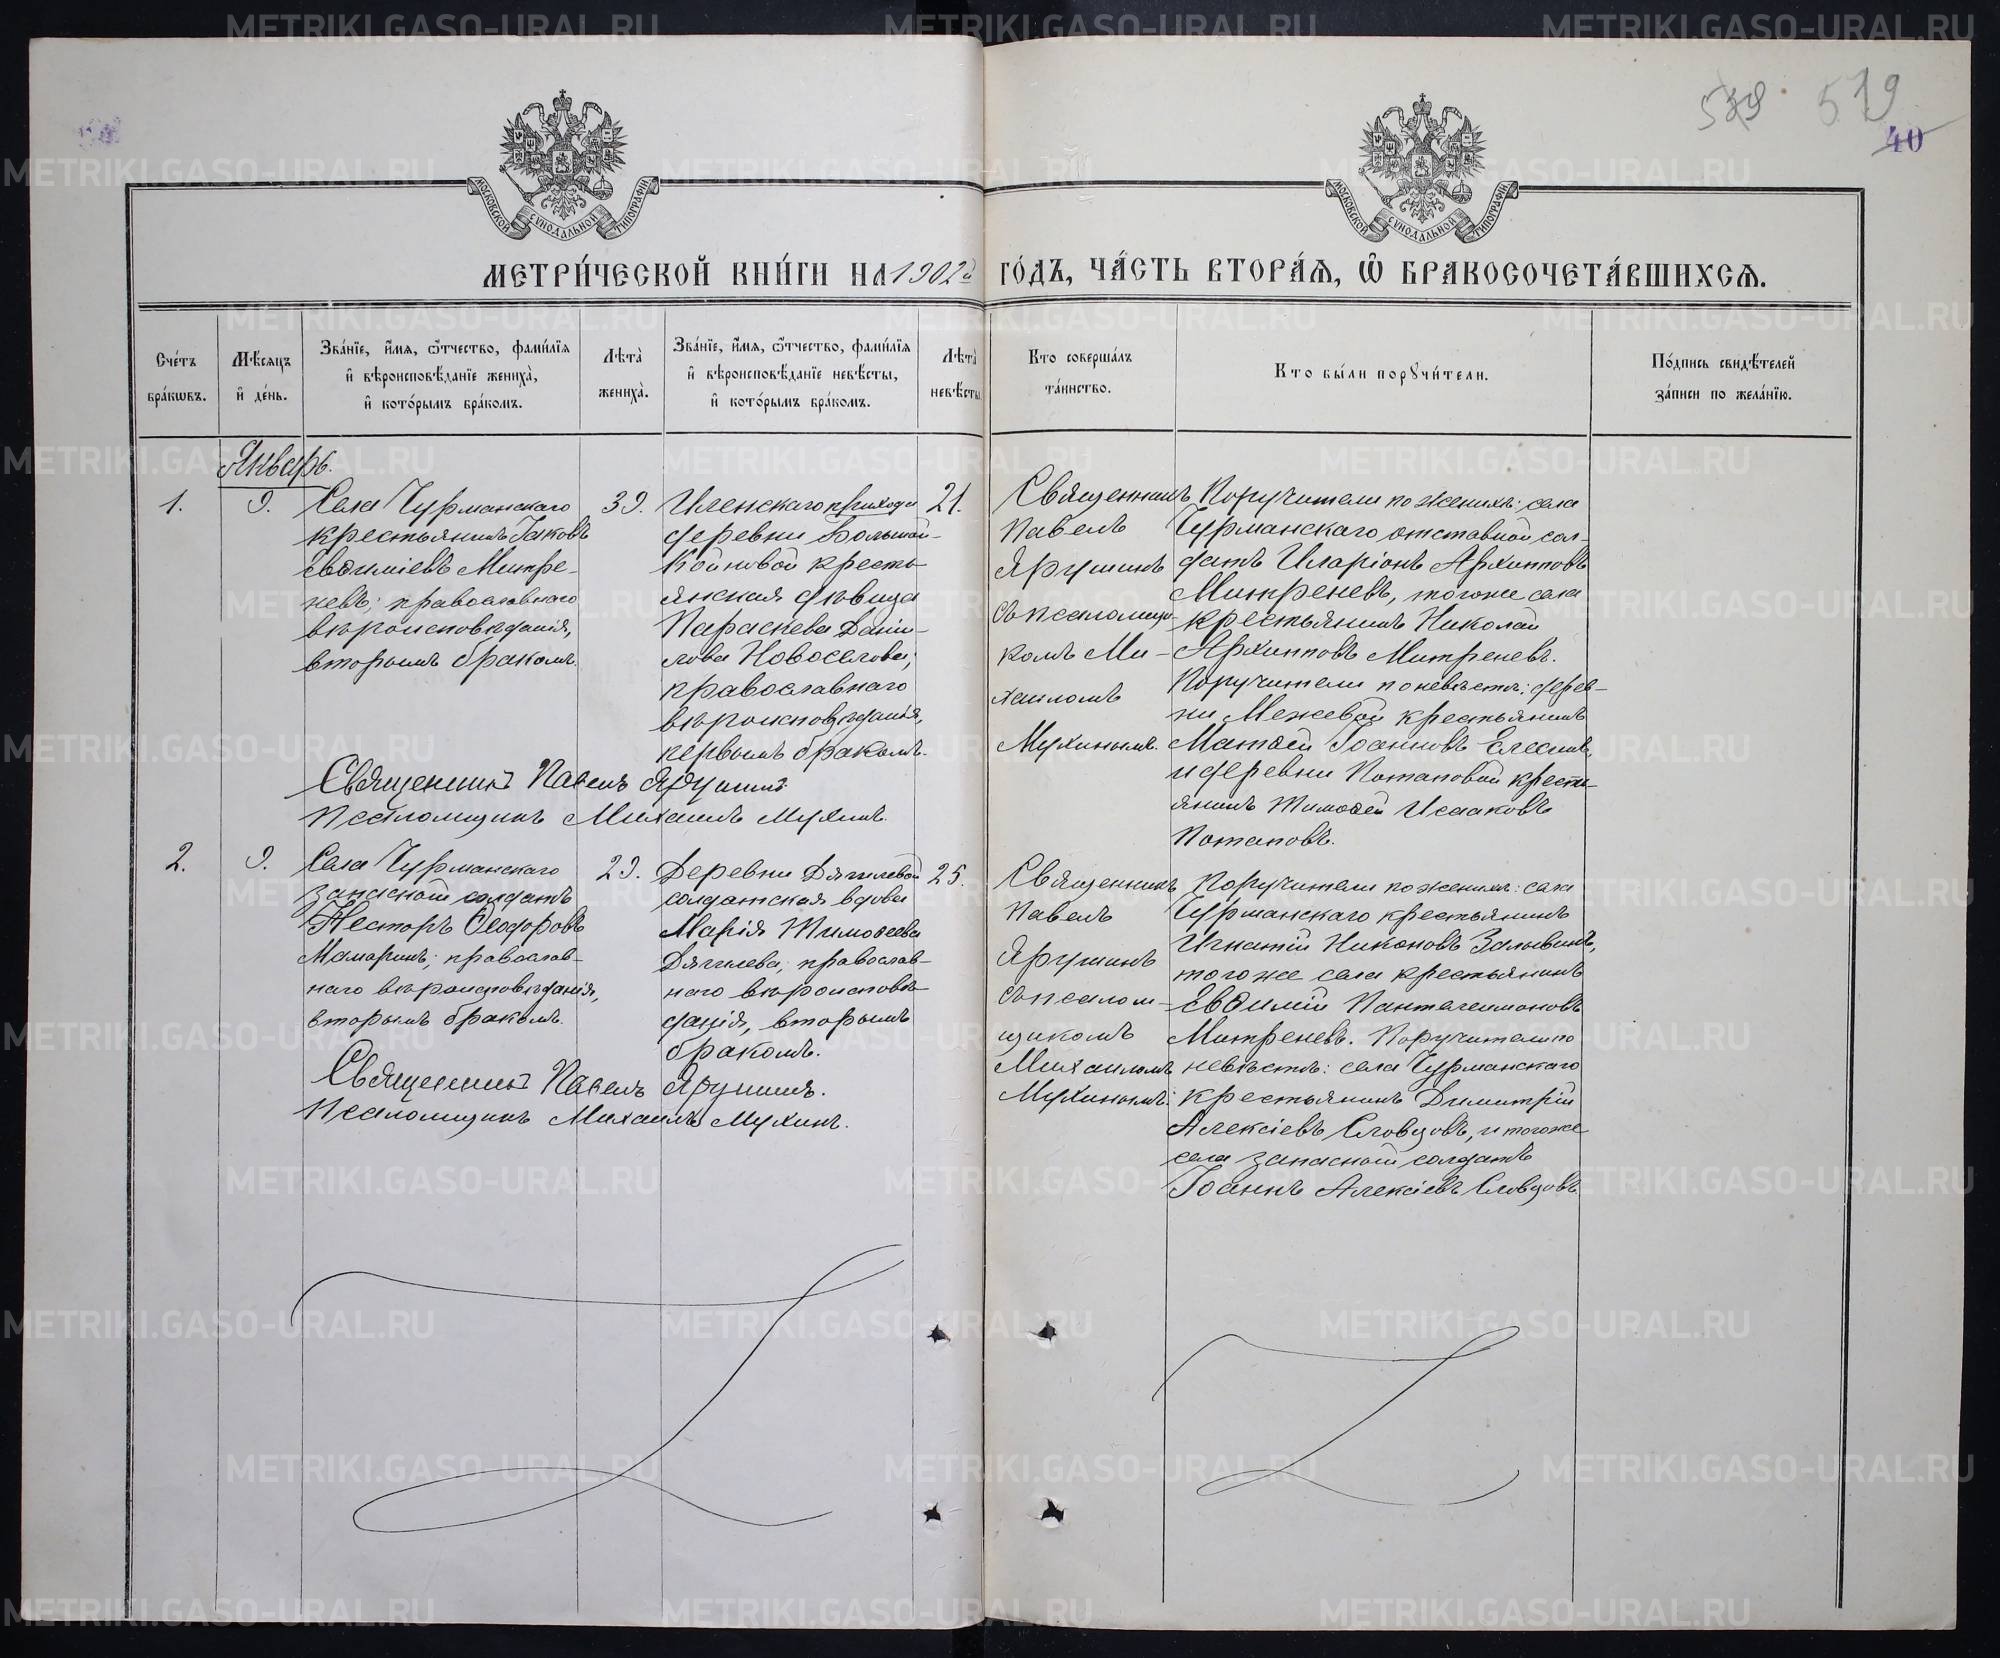 539 519
40
МОСКОВСКОЙ СѴНОДАЛЬНОЙ ТИПОГРАФІИ
МОСКОВСКОЙ СѴНОДАЛЬНОЙ ТИПОГРАФІИ
МЕТРИ́ЧЕСКОЙ КНИ́ГИ НА 1902й ГО́ДЪ, ЧА́СТЬ ВТОРА́Ѧ, Ѡ҆ БРАКОСОЧЕТА́ВШИХСѦ.
Сче́тъ бра́кѡвъ.
Мѣ́сѧцъ и҆ де́нь.
Зва́нїе, и҆́мѧ, ѻ҆́тчество, фами́лїѧ и҆ вѣроисповѣ́данїе жениха̀, и҆ кото́рымъ бра́комъ.
Лѣта̀ жениха̀.
Зва́нїе, и҆́мѧ, ѻ҆́тчество, фами́лїѧ и҆ вѣроисповѣ́данїе невѣ́сты, и҆ кото́рымъ бра́комъ.
Лѣта̀ невѣ́сты.
Кто соверша́лъ та́инство.
Кто бы́ли порꙋчи́тели.
По́дпись свидѣ́телей за́писи по жела́нїю.
Январь.
1.
9.
Села Чурманскаго
крестьянинъ Іаковъ
Евѳиміевъ Митре-
невъ; православнаго
вѣроисповѣданія,
вторымъ бракомъ.
39.
Иленскаго прихода
деревни Большой-
Койновой кресть-
янская дѣвица
Параскева Дани-
лова Новоселова;
православнаго
вѣроисповѣданія,
первымъ бракомъ.
21.
Священникъ
Павелъ
Ярушинъ
съ псаломщи-
комъ Ми-
хаиломъ
Мухинымъ.
Поручители по женихѣ: села
Чурманскаго отставной сол-
датъ Иларіонъ Архипповъ
Митреневъ, тогоже села
крестьянинъ Николай
Архипповъ Митреневъ.
Поручители по невѣстѣ: дерев-
ни Межевой крестьянинъ
Матѳей Іоанновъ
и деревни Потаповой кресть-
янинъ Тимоѳей Исааковъ
Потаповъ.
Священникъ Павелъ Ярушинъ
Псаломщикъ Михаилъ Мухинъ.
2.
9.
Села Чурманскаго
запасный солдатъ
Несторъ Ѳеодоровъ
Маморинъ; православ-
наго вѣроисповѣданія,
вторымъ бракомъ.
29.
Деревни Дягилевой
солдатская вдова
Марія Тимоѳеева
Дягилева; православ-
наго вѣроисповѣ-
данія, вторымъ
бракомъ.
25.
Священникъ
Павелъ
Ярушинъ
съ псалом-
щикомъ
Михаиломъ
Мухинымъ.
Поручители по женихѣ: села
Чурманскаго крестьянинъ
Игнатій Никоновъ Залывинъ,
тогоже села крестьянинъ
Евѳимій Пантелеимоновъ
Митреневъ. Поручители по
невѣстѣ: села Чурманскаго
крестьянинъ Димитрій
Алексіевъ Словцовъ, и тогоже
села запасный солдатъ
Іоаннъ Алексіевъ Словцовъ
Священникъ Павелъ Ярушинъ.
Псаломщикъ Михаилъ Мухинъ.
METRIKI.GASO-URAL.RU